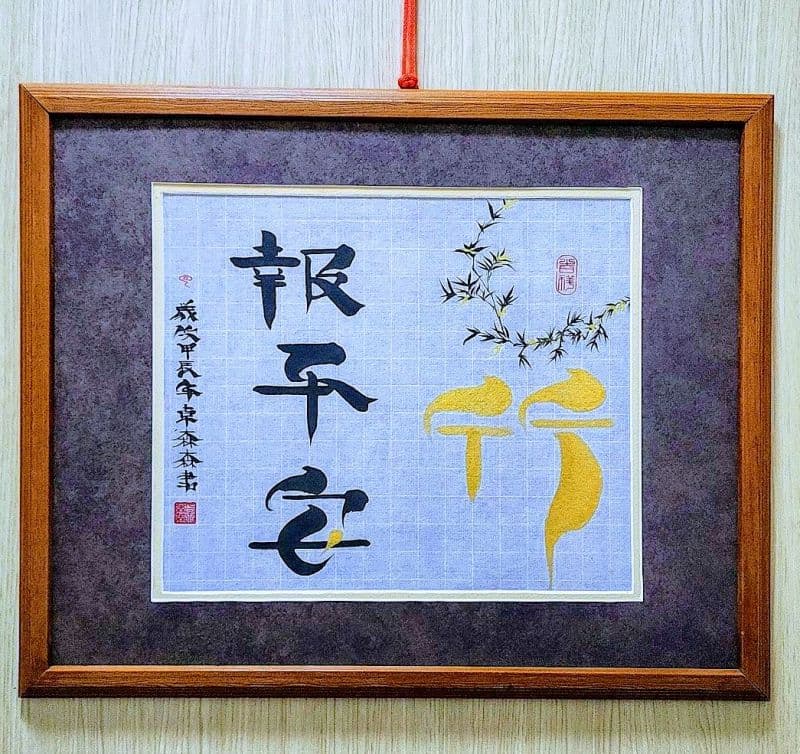 竹
報平安
歲次甲辰年卓森森書
吉祥